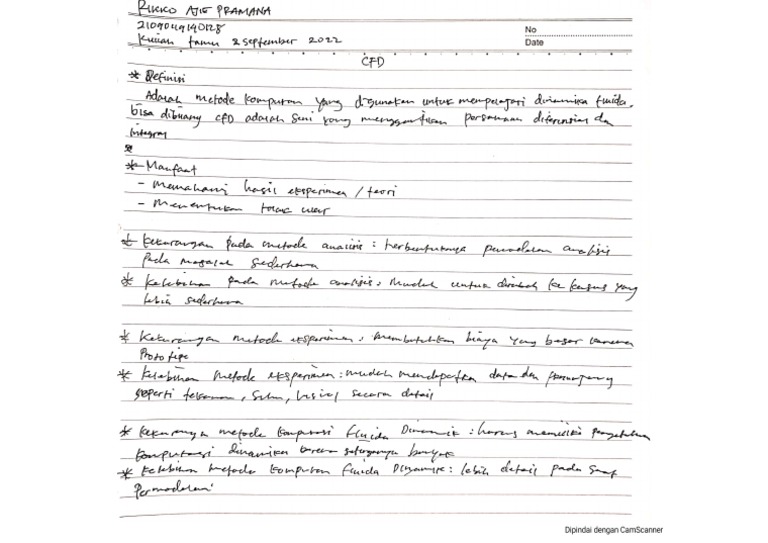 RIKKO AJIE PRAMANA
21090119140128
Kuliah tamu 2 september 2022
No
Date
CFD
* Definisi
Adalah metode komputasi yang digunakan untuk mempelajari dinamika fluida,
bisa dibilang CFD adalah seni yang menggantikan persamaan diferensial dan
integral
* Manfaat
- Memahami hasil eksperimen / teori
- Menentukan tolak ukur
* Kekurangan pada metode analisis : terbentuknya pemodelan analisis
pada masalah sederhana
* Kelebihan pada metode analisis : Mudah untuk dirubah ke kasus yang
lebih sederhana
* Kekurangan metode eksperimen : membutuhkan biaya yang besar karena
Prototipe
* Kelebihan metode eksperimen : mudah mendapatkan data dan
seperti tekanan, suhu, visual secara detail
* Kekurangan metode komputasi fluida Dinamik : harus memiliki pengetahuan
komputasi dinamika karena banyak
* Kelebihan metode komputasi fluida Dinamik : lebih detail pada saat
Permodelan
Dipindai dengan CamScanner